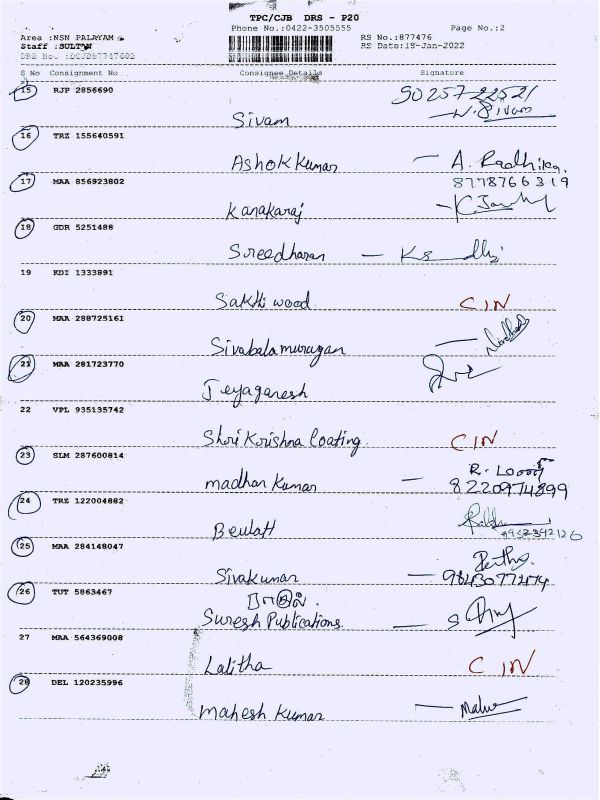 TPC/CJB DRS - P20
Phone No.:0422-3505555 Page No.:2
Area :NSN PALAYAM
Staff :SULTAN
RS No.:877476
RS Date:18-Jan-2022
S No Consignment No Consignee Details Signature
15 RJP 2856690
Sivam
16 TRZ 155640591
Ashok Kumar A. Radhika.
8778766319
17 MAA 856923802
Kanakaraj
18 GDR 5251488
Sreedharan
19 KDI 1333891
Sakthi wood CIN
20 MAA 288725161
Sivabalamurugan
21 MAA 281723770
Jeyaganesh
22 VPL 935135742
Shri Krishna Coating. CIN
23 SLM 287600814
madhan kumar 8220974899
24 TRZ 122004882
Beulah
25 MAA 284148047
Sivakumar
26 TUT 5863467
Suresh Publications.
27 MAA 564369008
Lalitha CIN
28 DEL 120235996
mahesh kumar